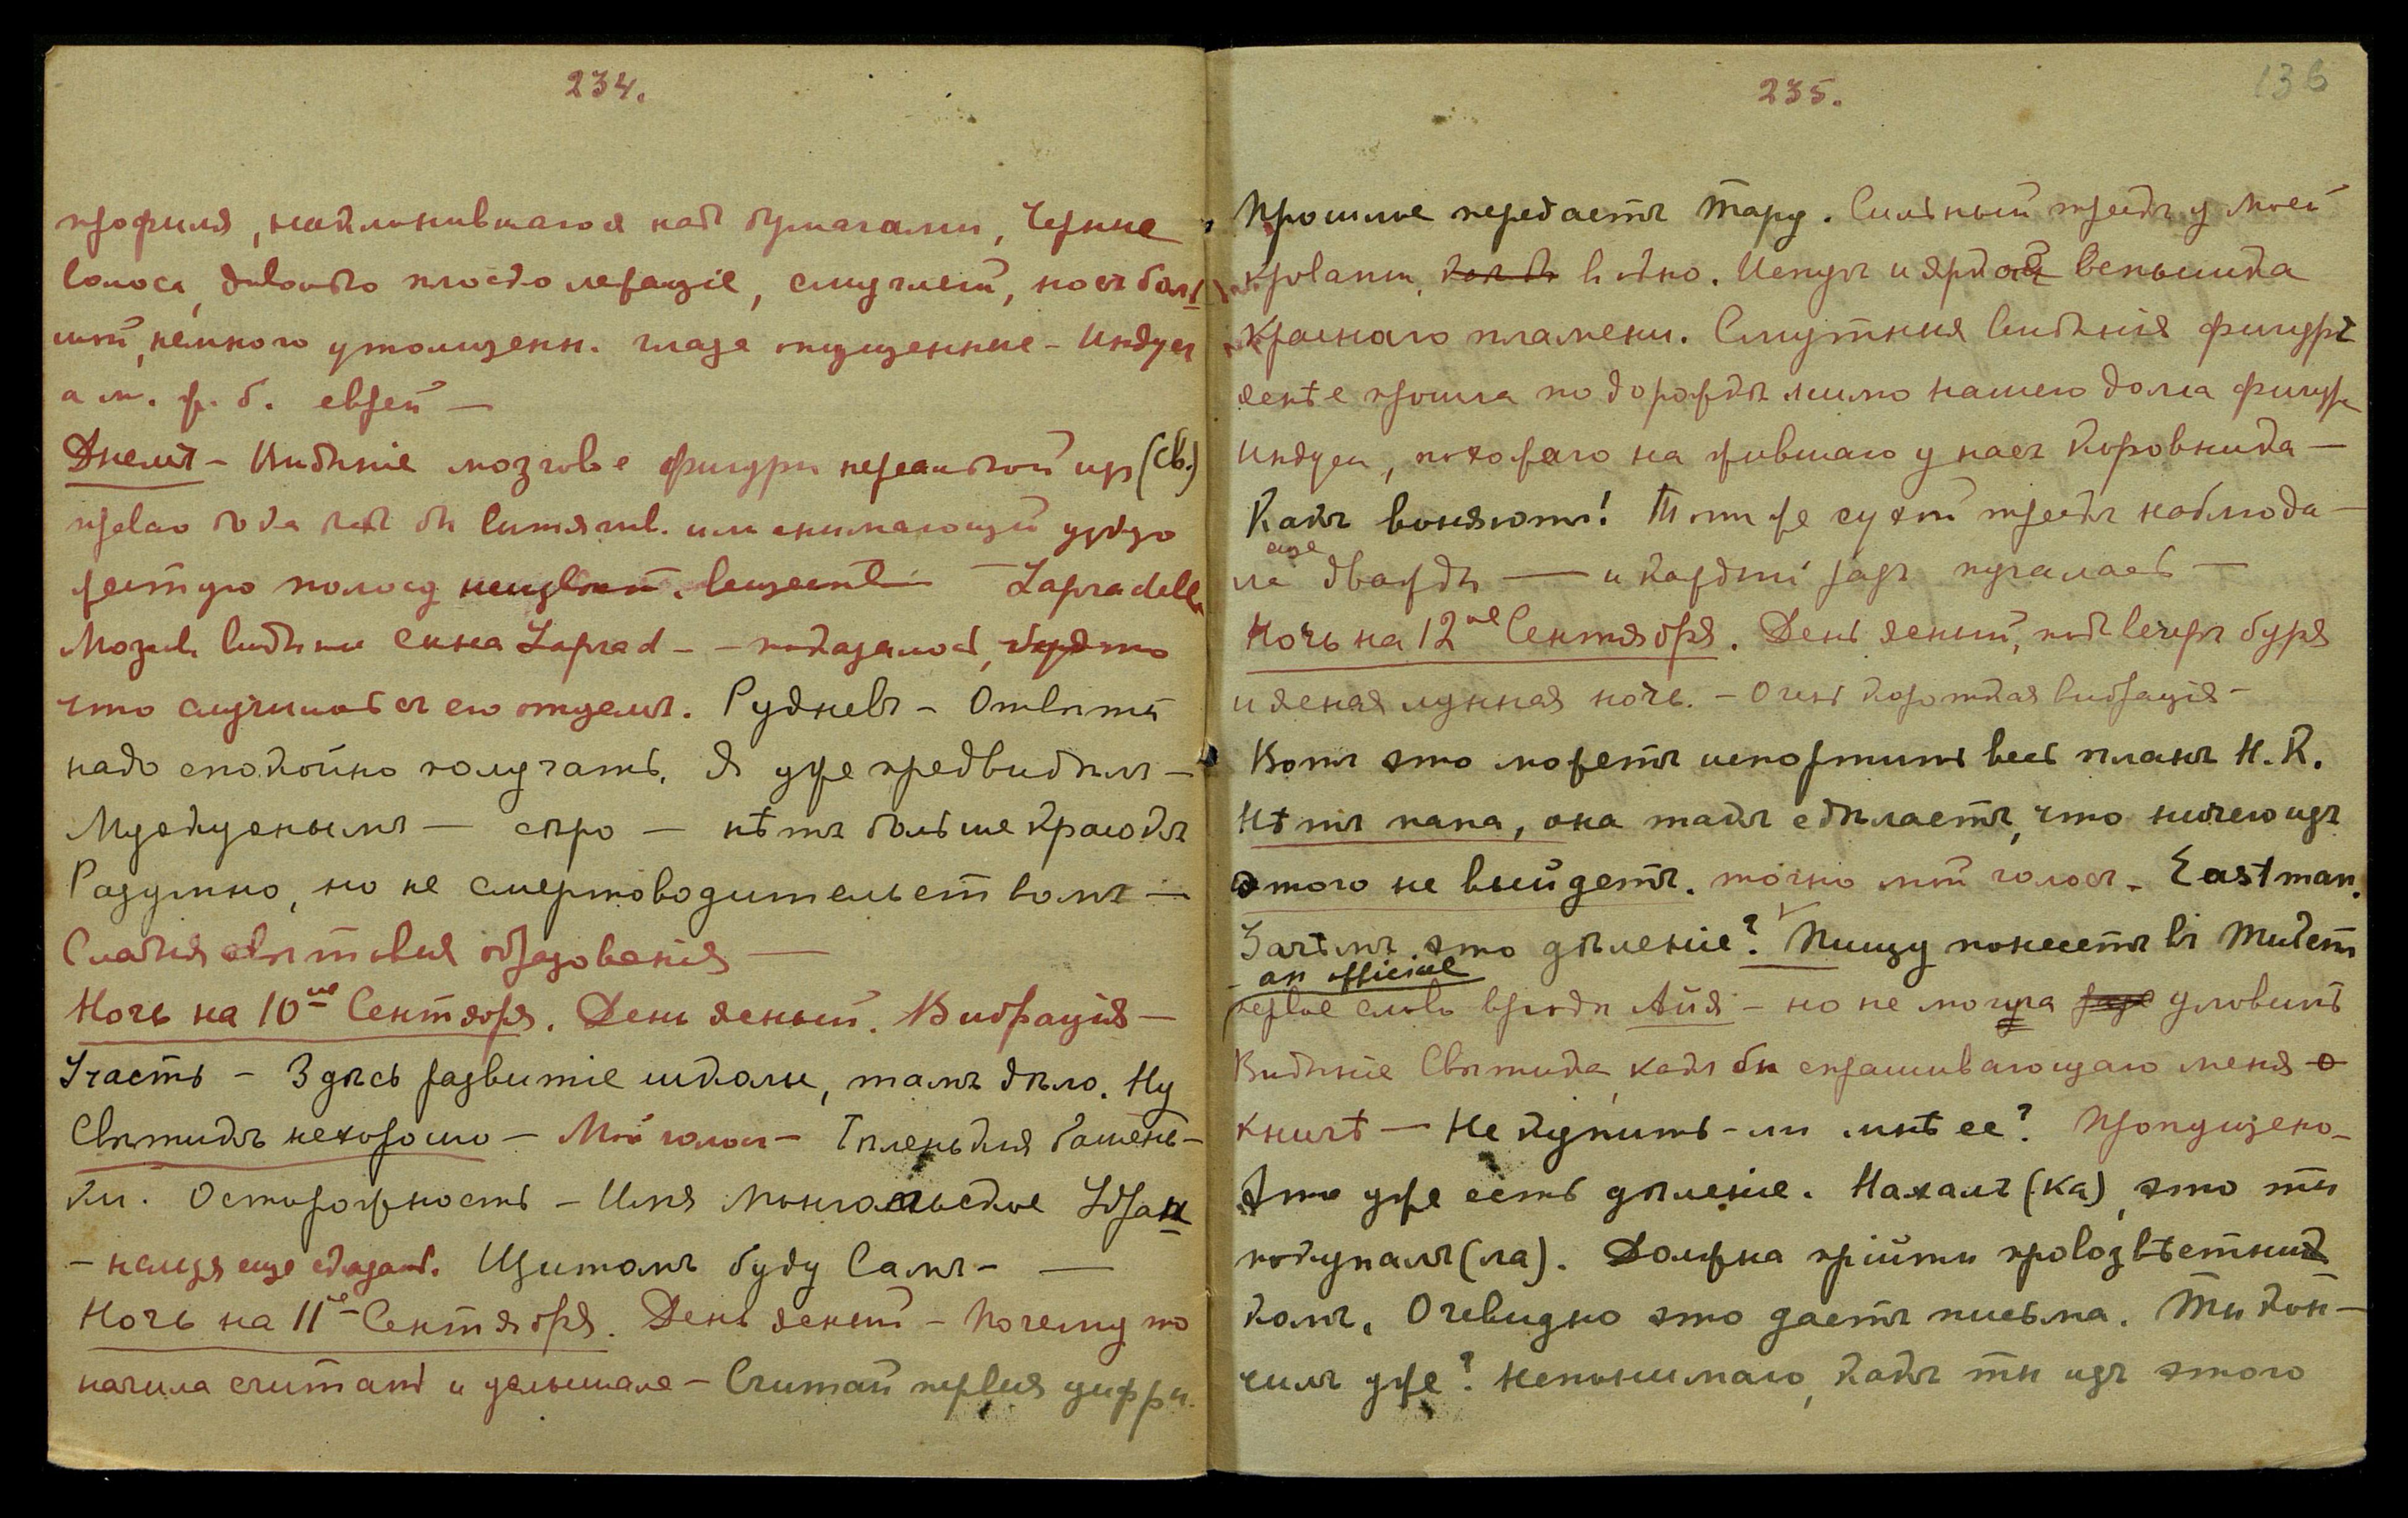 234.
профиля, наклонившагося над бумагами, черные
волоса, довольно плоско лежащіе, смуглый, нос боль
шой, немного утолщенн. глаза опущенные – Индус
а м. ж. б. еврей —
Днемъ – Видѣніе мозгов. фигуры (св.)
или снимающій узкую
жесткую полосу веществ — Lapradelle
Мозгов. видѣніе сына Laprad – – показалось,
что случилось съ его отцемъ. Рудневъ – Отвѣты
надо спокойно получать. Я уже предвидѣлъ –
Мудехуенымъ — сѣро — нѣтъ больше красокъ
Разумно, но не смертоводительствомъ —
Слабыя свѣтовыя образованія —
Ночь на 10ое Сентября. День ясный. Вибрація –
Участь – Здѣсь развитіе школы, тамъ дѣло. Ну
Святикъ нехорошо – Мой голосъ – Тѣленькія башень-
ки. Осторожность – Имя Монгольское
– нельзя еще сказать. Щитомъ буду Самъ – —
Ночь на 11ое Сентября. День ясный – Почему то
начала считать и услышала – Считай первыя цифры.
235.
136
Прошлое передаетъ Тару. Сильный трескъ у моей
кровати, видно. Испугъ и яркая вспышка
краснаго пламени. Смутныя видѣнія фигуръ
яснѣе прошла по дорожкѣ мимо нашего дома фигура
индуса, похожаго на жившаго у насъ коровника –
Какъ воняютъ! Тотъ же сухой трескъ наблюда-
еще
ла дважды — и каждый разъ пугалась –
Ночь на 12ое Сентября. День ясный, подъ вечеръ буря
и ясная лунная ночь. – Очень короткая вибрація –
Вотъ это можетъ испортить весь планъ Н.К.
Нѣтъ папа, она такъ сдѣлаетъ, что ничего изъ
этого не выйдетъ. точно мой голосъ – Eastman.
Зачѣмъ это дѣленіе? Пищу понесетъ въ Тибетъ
– an official
первое слово вродѣ Айя – но не могла уловить
Видѣніе Святика, какъ бы спрашивающаго меня о
книгѣ — Не купить-ли мнѣ ее? Пропущено –
Это уже есть дѣленіе. Нахалъ(ка), это ты
покупалъ(ла). Должна прійти провозвѣстни
комъ. Очевидно это даетъ письма. Ты кон-
чилъ уже? Непонимаю, какъ ты изъ этого